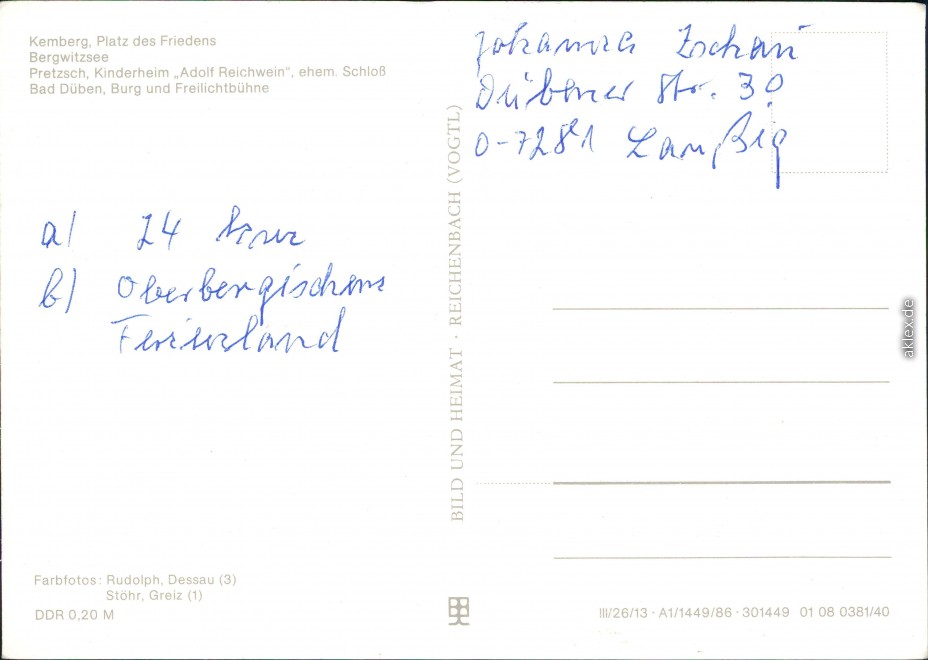 Kemberg, Platz des Friedens
Bergwitzsee
Pretzsch, Kinderheim „Adolf Reichwein“, ehem. Schloß
Bad Düben, Burg und Freilichtbühne
Johanna Zschau
Dübener Str. 30
0-7281 Laußig
a) 24
b) Oberbergischens
Ferienland
BILD UND HEIMAT · REICHENBACH (VOGTL)
Farbfotos: Rudolph, Dessau (3)
Stöhr, Greiz (1)
DDR 0,20 M
III/26/13 · A1/1449/86 · 301449 01 08 0381/40
aklex.de